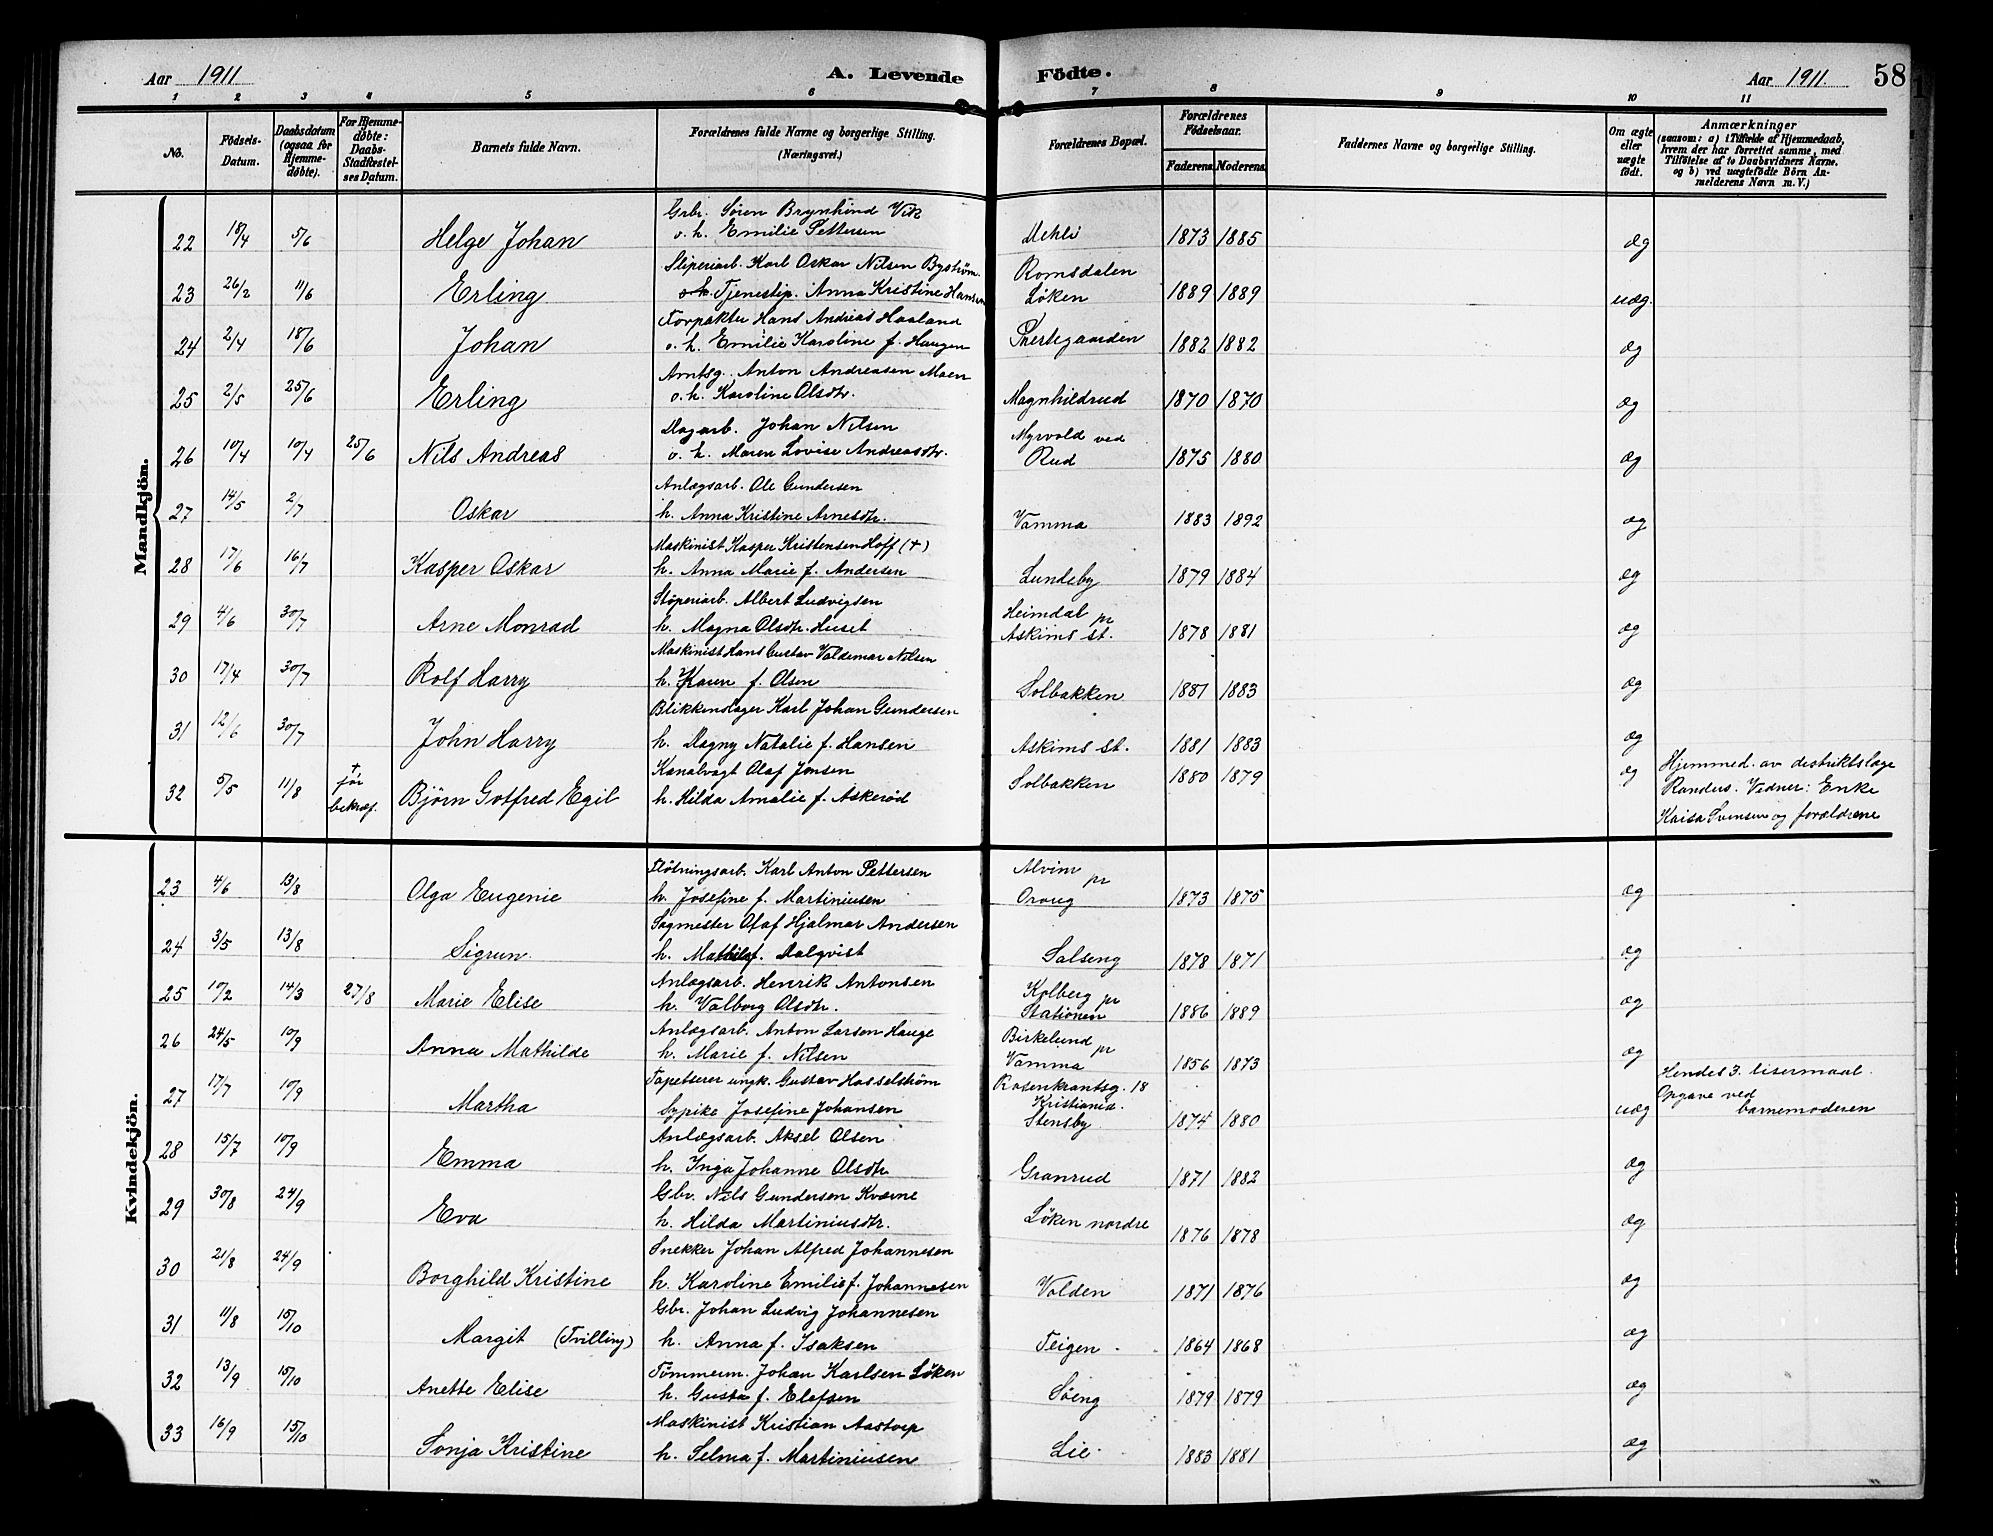 Aar 1911
A. Levende
Födte.
Aar 1911.
58
1 2 3 4 5 6 7 8 9 10 11
No.
Födsels-
Datum.
Daabsdatum
(ogsaa for
Hjemme-
döbte).
For Hjemme-
döbte:
Daabs-
Stadfæstel-
ses Datum.
Barnets fulde Navn.
Forældrenes fulde Navne og borgerlige Stilling.
(Næringsvei.)
Forældrenes Bopæl.
Forældrenes
Födselsaar.
Faderens.
Moderens.
Faddernes Navne og borgerlige Stilling.
Om ægte
eller
uægte
födt.
Anmærkninger
(saasom: a) i Tilfælde af Hjemmedaab,
hvem der har forrettet samme, med
Tilföielse af to Daabsvidners Navne.
og b) ved uægtefödte Börn An-
melderens Navn m. V.)
Mandkjön.
Grbr. Søren Brynhind Vik
22 18/4 5/6 Helge Johan o. h. Emilie Pettersen 1873 1885 æg
Sliperiarb. Karl Oskar Nilsen Byström. Romsdalen
23 26/2 11/6 Erling o. h. Tjenestp. Anna Kristine Hansen Løken 1889 1889 uæg.
Forpakter Hans Andreas Haaland
24 2/4 18/6 Johan o. h. Emilie Karoline f. Haugen Prestegaarden 1882 1882 æg
Amtsg. Anton Andreasen Moen
25 2/5 25/6 Erling o. h. Karoline Olsdtr. Magnhildrud 1870 1870 æg
Dagarb. Johan Nilsen Myrvold ved
26 10/4 10/4 25/6 Nils Andreas o. h. Maren Lovise Andreasdtr. Rud 1875 1880 æg
Anlægsarb. Ole Gundersen
27 14/5 2/7 Oskar h. Anna Kristine Arnesdtr. Vamma 1883 1892 æg
Maskinist Kasper Kristensen Hoff (+)
28 17/6 16/7 Kasper Oskar h. Anna Marie f. Andersen Lundeby 1879 1884 æg
Støperiarb. Albert Ludvigsen Heimdal pr
29 4/6 30/7 Arne Monrad h. Magna Olsdtr. Huset Askims st. 1878 1881 æg
Maskinist Hans Gustav Valdemar Nilsen
30 17/4 30/7 Rolf Harry h. Karen f. Olsen Solbakken 1881 1883 æg
Blikkenslager Karl Johan Gundersen
31 12/6 30/7 John Harry h. Dagny Natalie f. Hansen Askims st. 1881 1883 æg
+ Kanalvagt Olaf Jensen Solbakken 1880 1879 æg Hjemmed. av distriktslæge
32 5/5 11/8 før Björn Gotfred Egil h. Hilda Amalie f. Askerød Randers. Vidner: Enke
bekræf. Kaisa Svensen og forældrene
Kvindekjön.
Fløtningsarb. Karl Anton Pettersen Alvim pr
23 4/6 13/8 Olga Eugenie h. Josefine f. Martiniusen Oraug 1873 1875 æg
Sagmester Olaf Hjalmar Andersen
24 3/5 13/8 Sigrun. h. Mathilde f. Dalqvist Salseng 1878 1871 æg
Anlægsarb. Henrik Antonsen Kolberg pr
25 10/2 14/3 27/8 Marie Elise h. Valborg Olsdtr. Stationen 1886 1889 æg
Anlægsarb. Anton Larsen Hauge Birkelund pr
26 24/5 10/9 Anna Mathilde h. Marie f. Nilsen Vamma 1856 1873 æg
Tapetserer ungk. Gustav Hasselstrøm Rosenkrantsg. 18 Hendes 3.
27 17/7 10/9 Martha Kristiania. Opgave ved
Sypike Josefine Johansen Stensby 1874 1880 uæg barnemoderen
Anlægsarb. Aksel Olsen
28 15/7 10/9 Emma h. Inga Johanne Olsdtr Granrud 1871 1882 æg
Gbr. Nils Gundersen Kværne
29 30/8 24/9 Eva h. Hilda Martiniusdtr. Løken nordre 1876 1878 æg
Snekker Johan Alfred Johannesen
30 21/8 24/9 Borghild Kristine h. Karoline Emilie f. Johannesen Volden 1871 1876 æg
Gbr. Johan Ludvig Johannesen
31 11/8 15/10 Margit (Tvilling) h. Anna f. Isaksen Teigen 1864 1868 æg
Tömmerm. Johan Karlsen Løken
32 13/9 15/10 Anette Elise h. Gusta f. Elefsen Søeng 1879 1879 æg
Maskinist Kristian Aastorp
33 16/9 15/10 Sonja Kristine h. Selma f. Martiniusen Lie 1883 1881 æg